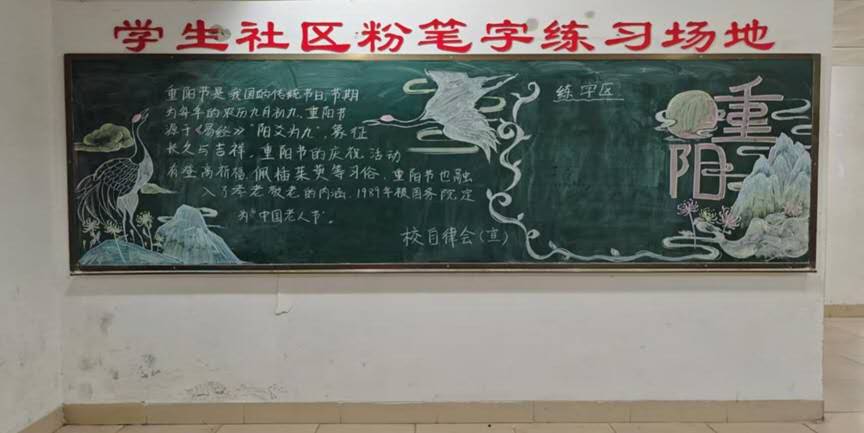 学生社区粉笔字练习场地
重阳节是我国的传统节日,节期
为每年的农历九月初九、重阳节
源于《易经》"阳爻为九",象征
长久与吉祥。重阳节的庆祝活动
有登高祈福、佩插茱萸等习俗,重阳节也融
入了孝老敬老的内涵.1989年被国务院定
为"中国老人节"。
校自律会(宣)
练字区
重阳